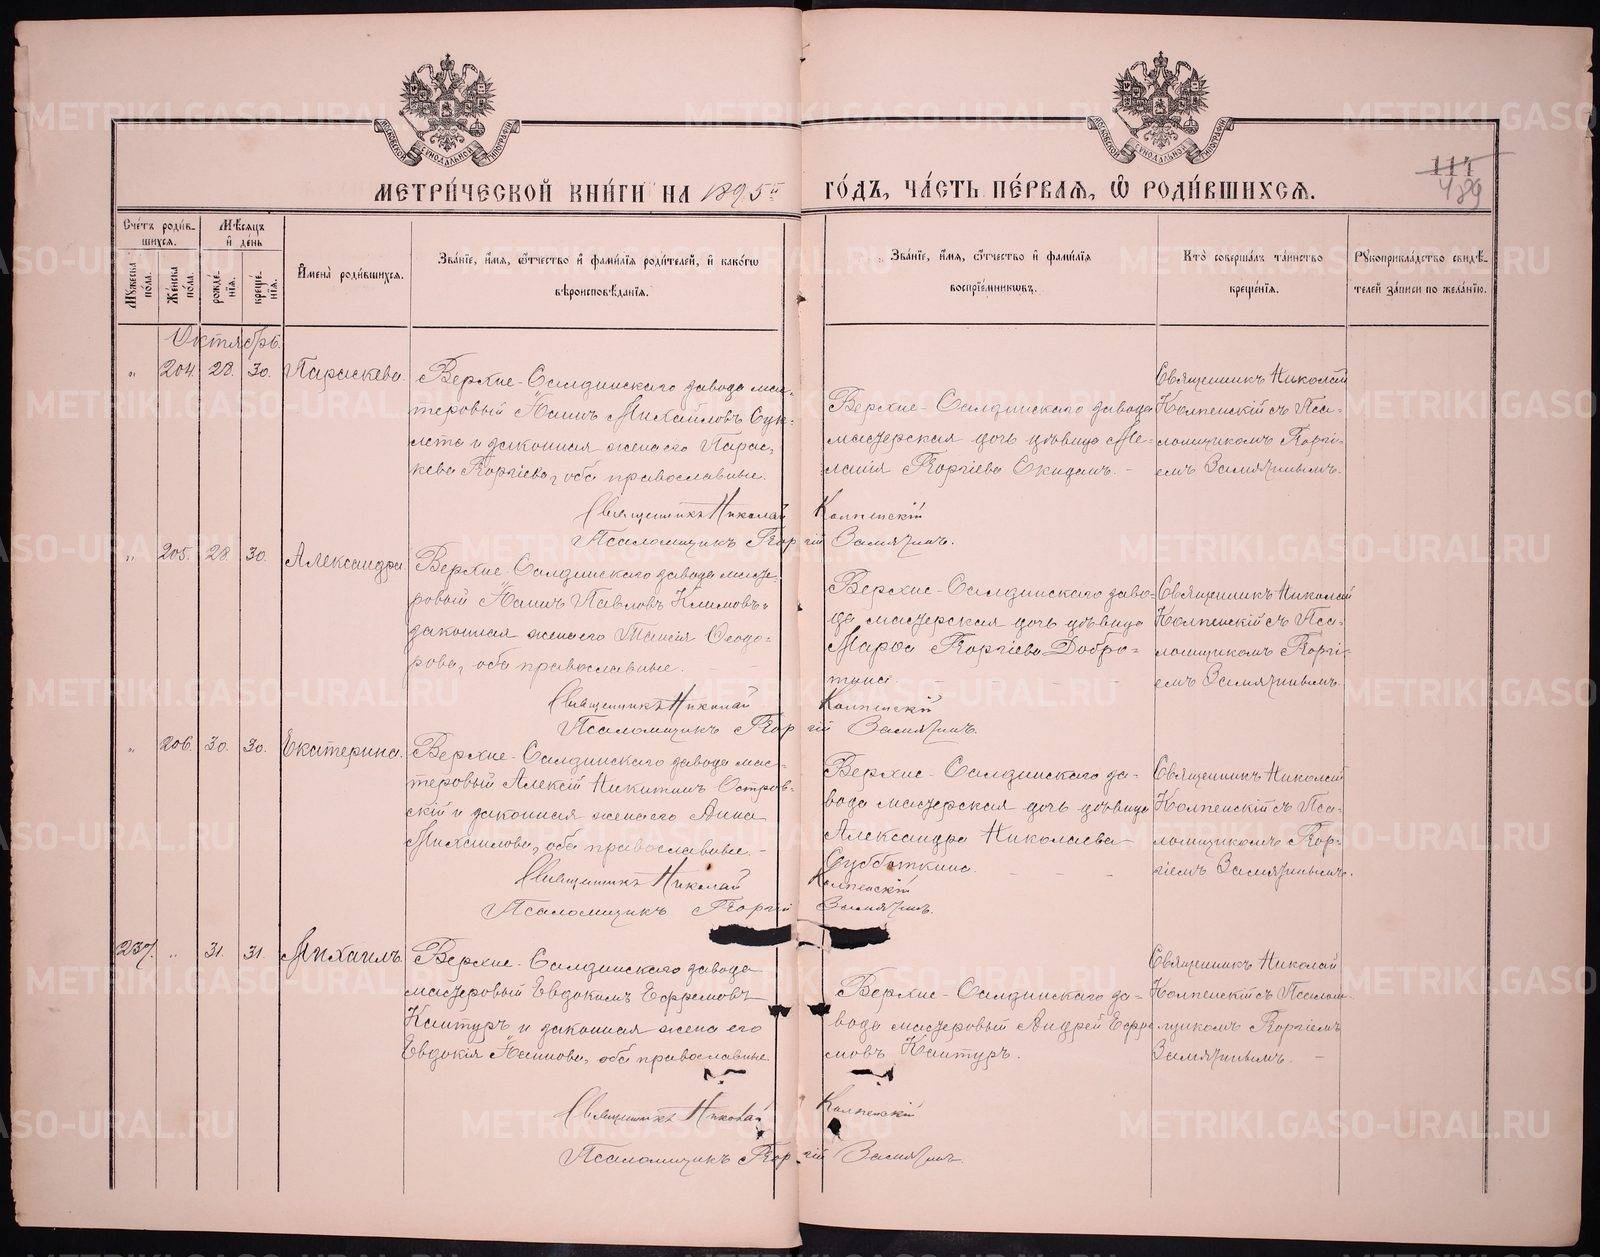 МОСКОВСКОЙ СУНОДАЛЬНОЙ ТИПОГРАФІИ
МОСКОВСКОЙ СУНОДАЛЬНОЙ ТИПОГРАФІИ
МЕТРИ́ЧЕСКОЙ КНИ́ГИ НА 1895й ГО́ДЪ, ЧА́СТЬ ПЕ́РВАѦ, Ѡ РОДИ́ВШИХСѦ.
111
489
Сче́тъ роди́в-
шихсѧ.
Мѣ́сѧцъ
и҆ де́нь
Мꙋ́жеска по́ла.
Же́нска по́ла.
рожде́-
нїѧ.
креще́-
нїѧ.
И҆мена̀ роди́вшихсѧ.
Зва́нїе, и҆́мѧ, ѻ҆́тчество и҆ фами́лїѧ роди́телей, и҆ како́гѡ
вѣроисповѣ́данїѧ.
Зва́нїе, и҆́мѧ, ѻ҆́тчество и҆ фами́лїѧ
воспрїе́мникѡвъ.
Кто̀ соверша́лъ та́инство
креще́нїѧ.
Рꙋкоприкла́дство свидѣ́-
телей за́писи по жела́нїю.
Октябрь.
" 204. 28. 30. Параскева.
Верхне-Салдинскаго завода мас-
теровый Іоаннъ Михайловъ
и законная жена его Парас-
кева Георгіева, оба православные.
Верхне-Салдинскаго завода
мастерская дочь дѣвица Ме-
ланія Георгіева
Священникъ Николай
Колпенскій съ Пса-
ломщикомъ Георгі-
емъ Замятнинымъ.
Священникъ Николай Колпенскій
Псаломщикъ Георгій Замятнинъ.
" 205. 28. 30. Александра.
Верхне-Салдинскаго завода масте-
ровый Іоаннъ Павловъ Климовъ и
законная жена его Таисія Ѳеодо-
рова, оба православные.
Верхне-Салдинскаго заво-
да мастерская дочь дѣвица
Марѳа Георгіева
Священникъ Николай
Колпенскій съ Пса-
ломщикомъ Георгі-
емъ Замятнинымъ.
Священникъ Николай Колпенскій
Псаломщикъ Георгій Замятнинъ.
" 206. 30. 30. Екатерина.
Верхне-Салдинскаго завода мас-
теровый Алексій Никитинъ Островс-
кій и законная жена его Анна
Михаилова, оба православные.
Верхне-Салдинскаго за-
вода мастерская дочь дѣвица
Александра Николаева
Субботкина.
Священникъ Николай
Колпенскій съ Пса-
ломщикомъ Геор-
гіемъ Замятнинымъ.
Священникъ Николай Колпенскій
Псаломщикъ Георгій Замятнинъ.
237. " 31. 31. Михаилъ.
Верхне-Салдинскаго завода
мастеровый Евдокимъ Ефремовъ
Кантуръ и законная жена его
Евдокія Іоаннова, оба православные.
Верхне-Салдинскаго за-
вода мастеровый Андрей Ефре-
мовъ Кантуръ.
Священникъ Николай
Колпенскій съ Псалом-
щикомъ Георгіемъ
Замятнинымъ.
Священникъ Николай Колпенскій
Псаломщикъ Георгій Замятнинъ.
METRIKI.GASO-URAL.RU